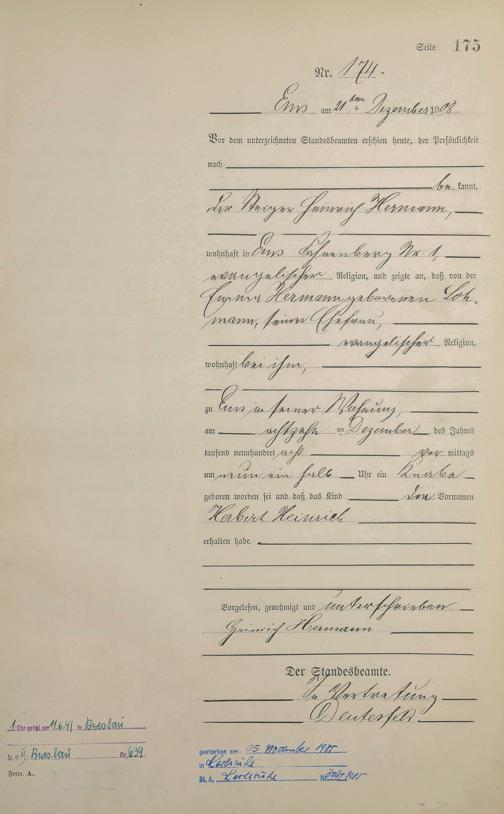 Seite 175
Nr. 174.
Ems am 21ten Dezember 1908.
Vor dem unterzeichneten Standesbeamten erschien heute, der Persönlichkeit
nach
be kannt,
der Steiger Heinrich Hermann,
wohnhaft in Ems Nr 1,
evangelischer Religion, und zeigte an, daß von der
Hermann geborenen Loh-
mann, seiner Ehefrau,
evangelischer Religion,
wohnhaft bei ihm,
zu Ems in seiner Wohnung,
am achtzehn ten Dezember des Jahres
tausend neunhundert acht vor mittags
um neun ein halb Uhr ein Knabe
geboren worden sei und daß das Kind die Vornamen
Herbert Heinrich
erhalten habe.
Vorgelesen, genehmigt und unterschrieben
Heinrich Hermann
Der Standesbeamte.
In Vertretung
1. Ehe geschl. am 11.6.41 in Breslau
St. A. II, Breslau Nr. 639
Form. A.
gestorben am: 15 November 1985
in Karlsruhe
St. A. Karlsruhe Nr.